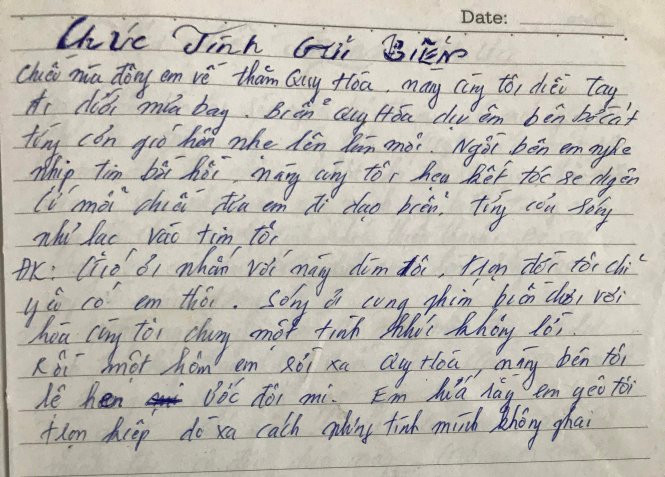 Date:
Khúc Tình Gửi Biển
Chiều mưa đông em về thăm Quy Hòa, nàng cùng tôi dìu tay
đi dưới mưa bay. Biển Quy Hòa dịu êm bên bờ cát
từng cơn gió hôn nhẹ lên làn môi. Ngồi bên em nghe
nhịp tim bồi hồi, nàng cùng tôi hẹn kết tóc se duyên
Cứ mỗi chiều đưa em đi dạo biển. từng cơn sóng
như lạc vào tim tôi
ĐK: Gió ơi nhắn với nàng dùm tôi, trọn đời tôi chỉ
yêu có em thôi. Sóng ơi cung phím buồn chơi vơi
hòa cùng tôi chung một tình khúc không lời.
Rồi một hôm em rời xa Quy Hòa, nàng bên tôi
lệ hoen ước đôi mi. Em hứa rằng em yêu tôi
trọn kiếp dù xa cách nhưng tình mình không phai